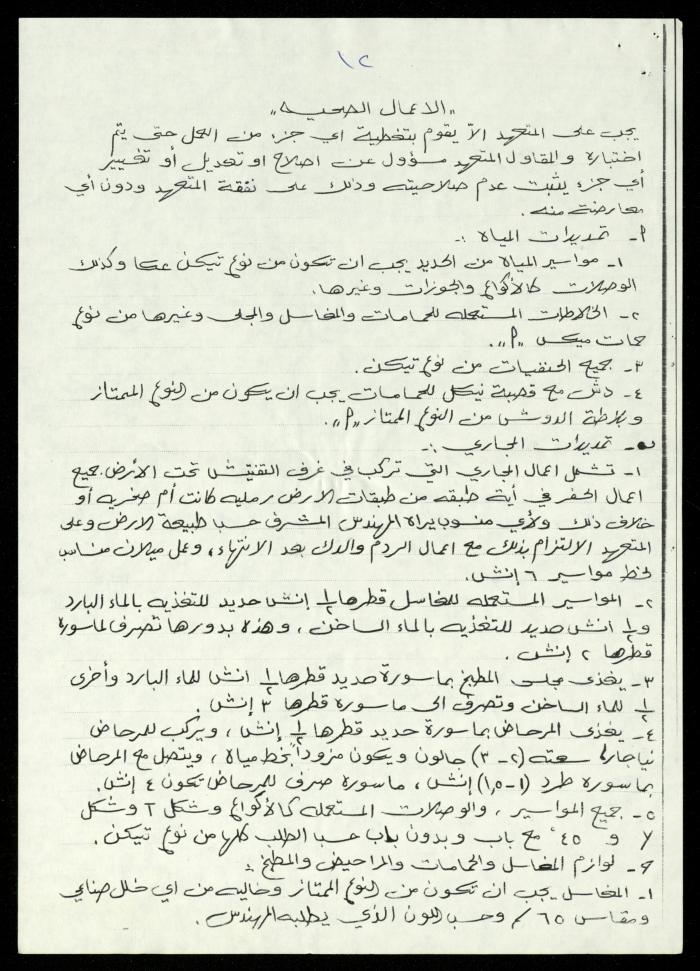 ١٢
"الاعمال الصحيه"
يجب على المتعهد الاّ يقوم بتغطية اي جزء من العمل حتى يتم
اختباره والمقاول المتعهد مسؤول عن اصلاح او تعديل أو تغيير
أي جزء يثبت عدم صلاحيته وذلك على نفقة المتعهد ودون أي
معارضة منه.
أ- تمديدات المياه :-
١- مواسير المياه من الحديد يجب ان تكون من نوع تيكن عكا وكذلك
الوصلات كالأكواع والجوزات وغيرها.
٢- الخلاطات المستعمله للحمامات والمغاسل والمجلى وغيرها من نوع
حمات ميكس "أ".
٣- جميع الحنفيات من نوع تيكن.
٤- دش مع قصبة نيكل للحمامات يجب ان يكون من النوع الممتاز
وبلاطة الدوش من النوع الممتاز "أ".
ب- تمديدات المجاري :-
١- تشمل اعمال المجاري التي تركب في غرف التفتيش تحت الأرض جميع
اعمال الحفر في أية طبقه من طبقات الارض رمليه كانت أم صخريه أو
خلاف ذلك ولأي منسوب يراه المهندس المشرف حسب طبيعة الارض وعلى
المتعهد الالتزام بذلك مع اعمال الردم والدك بعد الانتهاء، وعمل ميلان مناسب
لخط مواسير ٦ إنش.
٢- المواسير المستعمله للمغاسل قطرها ١/٢ إنش حديد للتغذيه بالماء البارد
و ١/٢ انش حديد للتغذيه بالماء الساخن، وهذه بدورها تصرف لماسورة
قطرها ٢ إنش.
٣- يغذى مجلى المطبخ بماسورة حديد قطرها ١/٢ انش للماء البارد وأخرى
١/٢ للماء الساخن وتصرف الى ماسورة قطرها ٣ إنش.
٤- يغذى المرحاض بماسورة حديد قطرها ١/٢ إنش، ويركب للمرحاض
نياجارا سعته (٢-٣) جالون ويكون مزوداً بخط مياه، ويتصل مع المرحاض
بماسورة طرد (١-١,٥) إنش، ماسورة صرف للمرحاض تكون ٤ إنش.
٥- جميع المواسير، والوصلات المستعمله كالأكواع وشكل T وشكل
Y و ٤٥° مع باب وبدون باب حسب الطلب كلها من نوع تيكن.
ج- لوازم المغاسل والحمامات والمراحيض والمطبخ :-
١- المغاسل يجب ان تكون من النوع الممتاز وخاليه من اي خلل صناعي
ومقاس ٦٥ وحسب اللون الذي يطلبه المهندس.